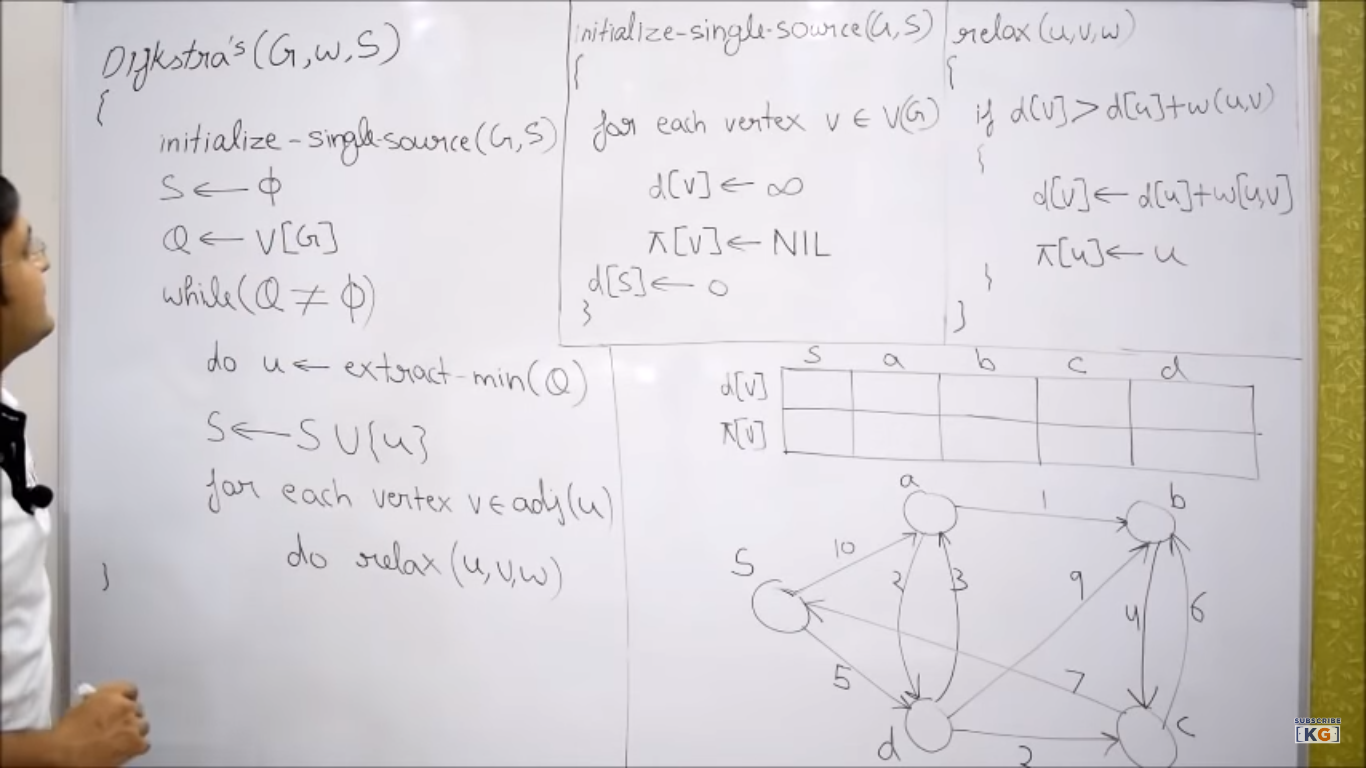 Dijkstra's (G,w,S)
{
initialize-single-source(G,S)
S ← ϕ
Q ← V[G]
while(Q ≠ ϕ)
do u ← extract-min(Q)
S ← S ∪ {u}
for each vertex v ∈ adj(u)
do relax(u,v,w)
}
initialize-single-source(G,S)
{
for each vertex v ∈ V(G)
d[v] ← ∞
π[v] ← NIL
d[S] ← 0
}
relax(u,v,w)
{
if d[v] > d[u]+w(u,v)
{
d[v] ← d[u]+w[u,v]
π[u] ← u
}
}
S a b c d
d[v]
π[v]
a
1
b
10
S
2
3
9
4
6
5
7
d
2
c
SUBSCRIBE
[KG]